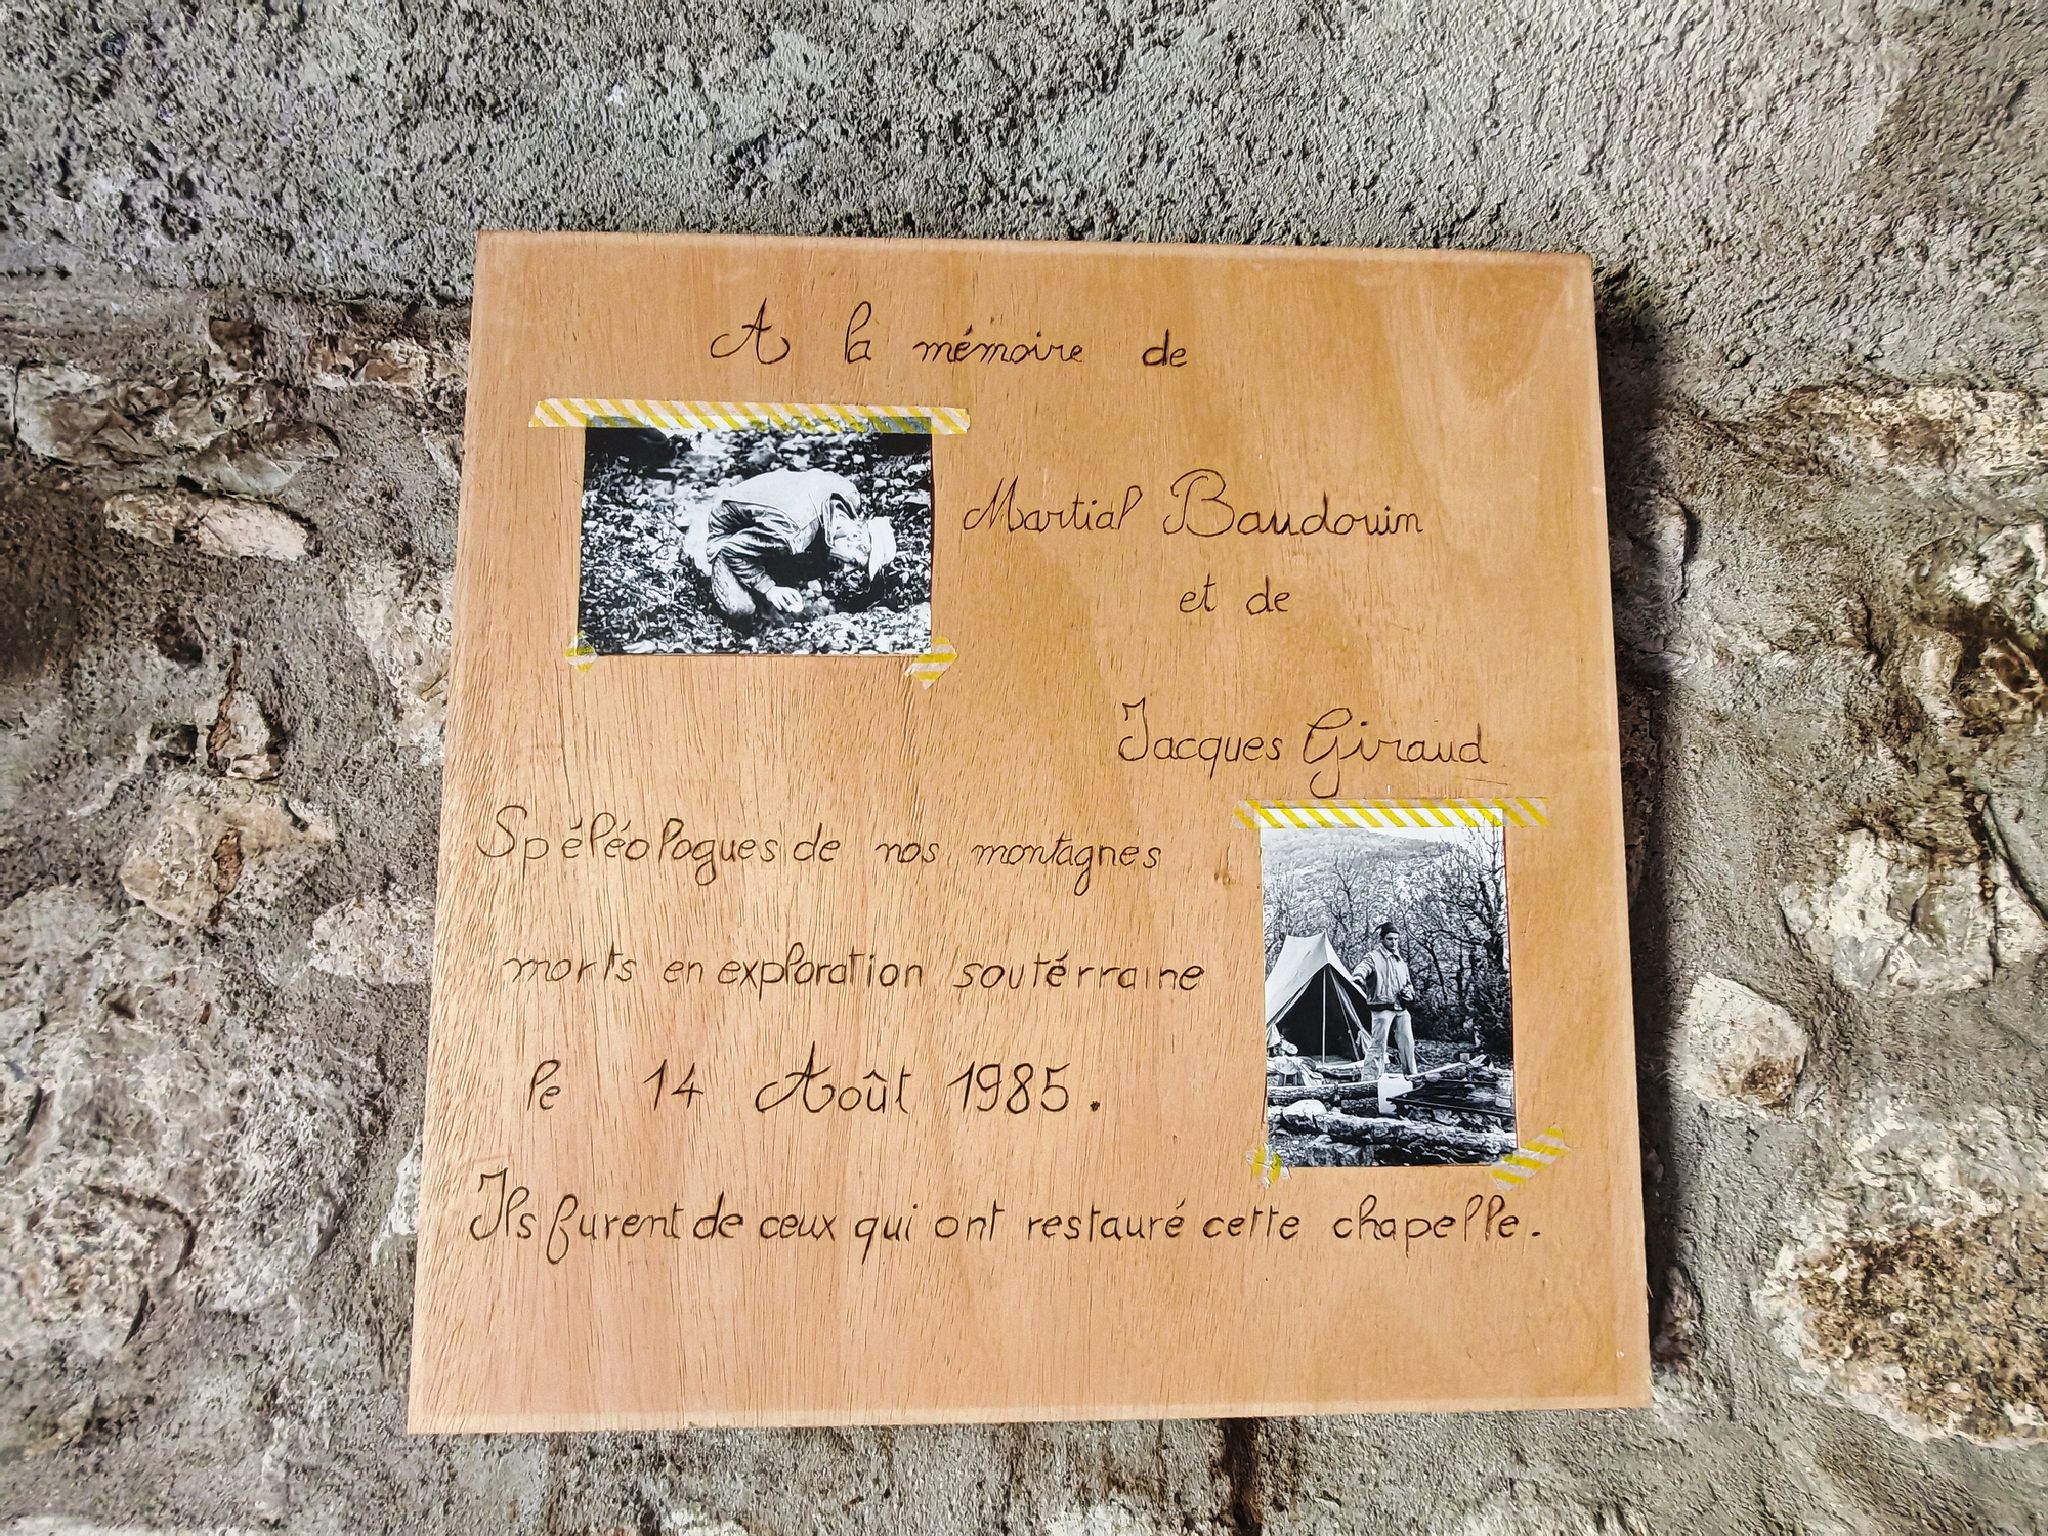 A la mémoire de
Martial Baudouin
et de
Jacques Giraud
Spéléologues de nos montagnes
morts en exploration soutérraine
le 14 Août 1985.
Ils furent de ceux qui ont restauré cette chapelle.